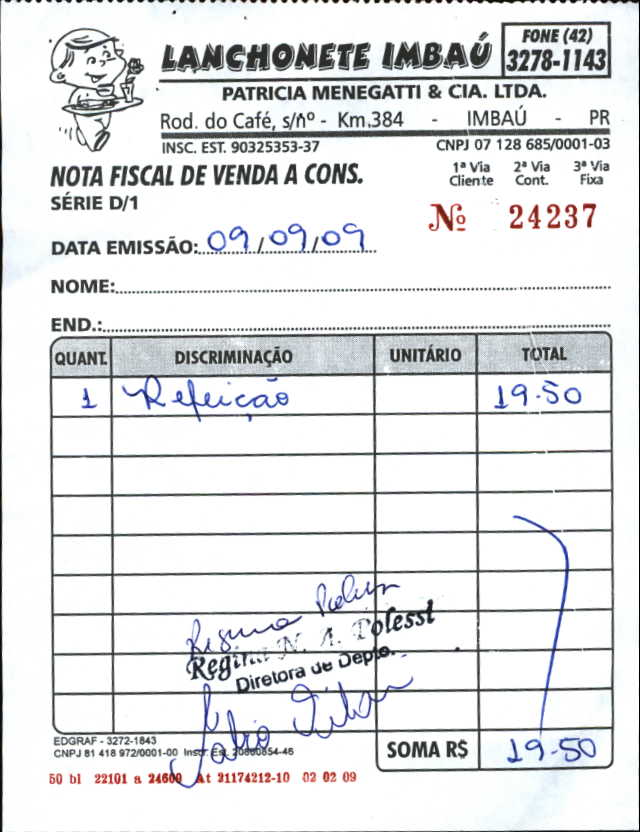 LANCHONETE IMBAÚ
FONE (42)
3278-1143
PATRICIA MENEGATTI & CIA. LTDA.
Rod. do Café, s/nº - Km.384 - IMBAÚ - PR
INSC. EST. 90325353-37 CNPJ 07 128 685/0001-03
NOTA FISCAL DE VENDA A CONS.
1ª Via 2ª Via 3ª Via
Cliente Cont. Fixa
SÉRIE D/1
Nº 24237
DATA EMISSÃO: 09/09/09
NOME:
END.:
QUANT. DISCRIMINAÇÃO UNITÁRIO TOTAL
1 Refeição 19.50
Regina
Regina N. A. Polessi
Diretora de Depto.
Fábio
EDGRAF - 3272-1843
CNPJ 81 418 972/0001-00 Inscr. Est. 20860854-46
SOMA R$ 19.50
50 bl 22101 a 24600 At 21174212-10 02 02 09